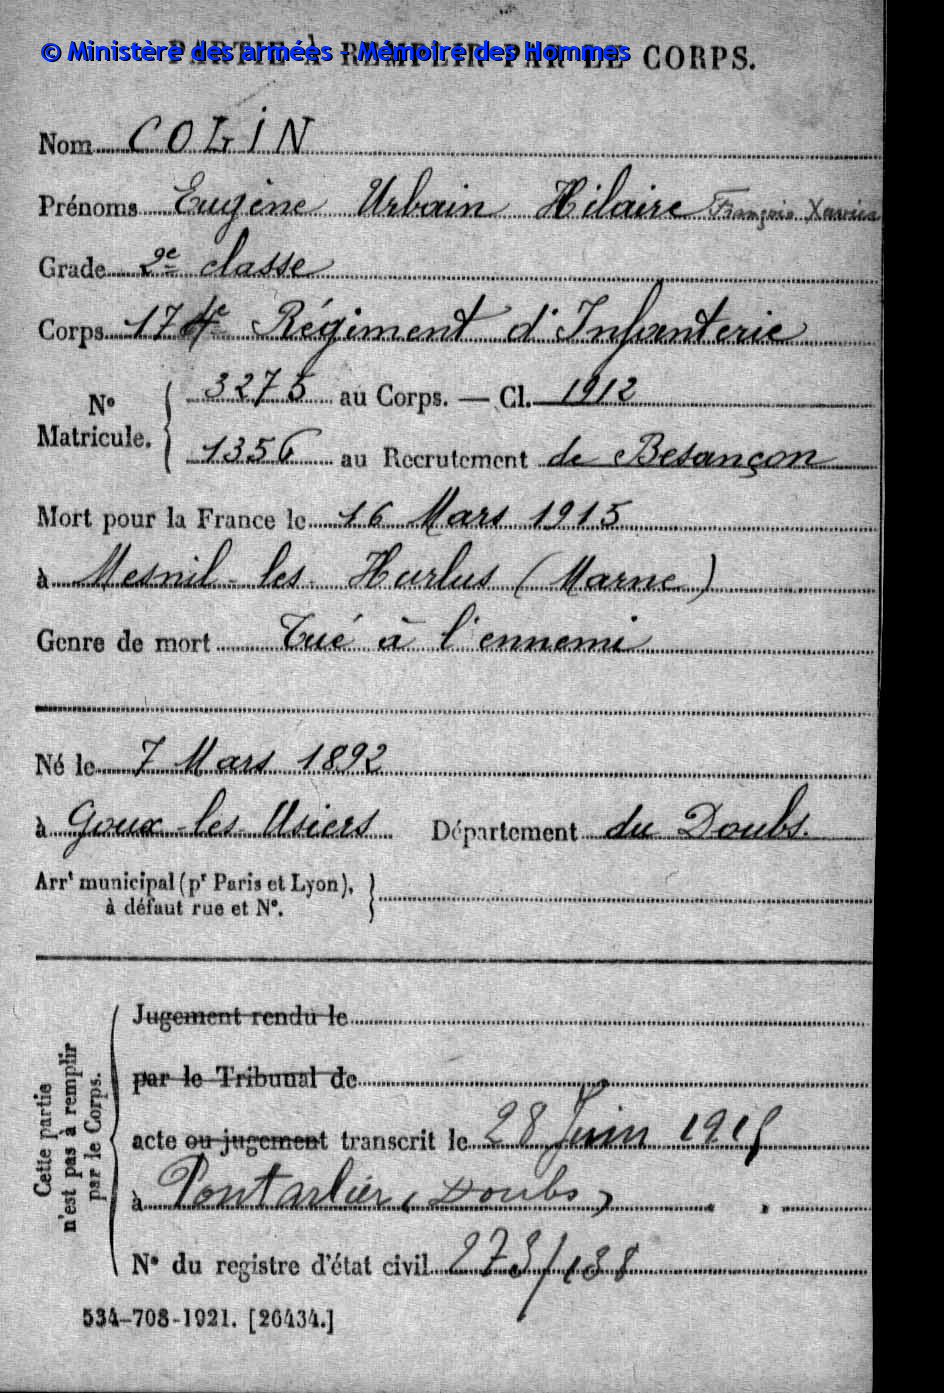 PARTIE À REMPLIR PAR LE CORPS.
© Ministère des armées - Mémoire des Hommes
Nom COLIN
Prénoms Eugène Urbain Hilaire François Xavier
Grade 2e classe
Corps 174e Régiment d'Infanterie
No Matricule. 3275 au Corps. — Cl. 1912
1356 au Recrutement de Besançon
Mort pour la France le 16 Mars 1915
à Mesnil-les-Hurlus (Marne)
Genre de mort Tué à l'ennemi
Né le 7 Mars 1892
à Goux-les-Usiers Département du Doubs.
Arrt municipal (pr Paris et Lyon),
à défaut rue et No.
Cette partie n'est pas à remplir par le Corps.
Jugement rendu le
par le Tribunal de
acte ou jugement transcrit le 28 Juin 1915
à Pontarlier (Doubs)
No du registre d'état civil 273/138
534-708-1921. [26434.]